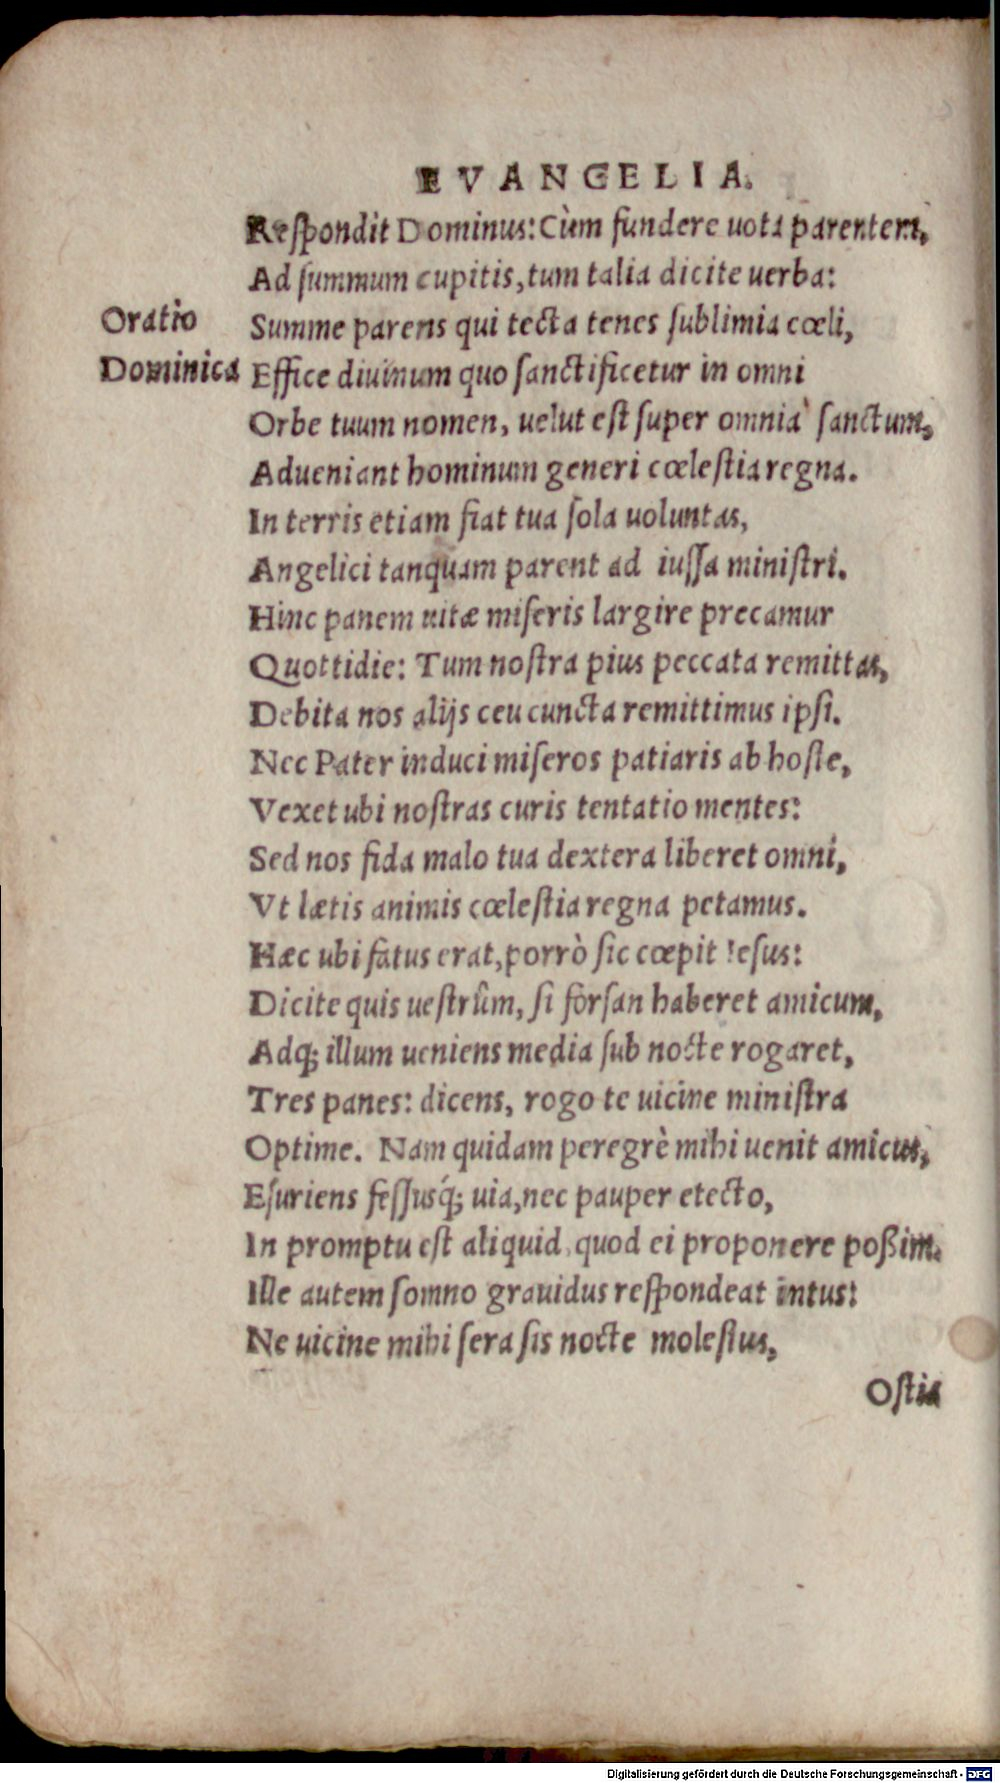 EVANGELIA.
Reſpondit Dominus: Cùm fundere uota parentem,
Ad ſummum cupitis, tum talia dicite uerba:
Oratio
Dominica
Summe parens qui tecta tenes ſublimia cœli,
Effice diuinum quo ſanctificetur in omni
Orbe tuum nomen, uelut eſt ſuper omnia ſanctum,
Adueniant hominum generi cœleſtia regna.
In terris etiam fiat tua ſola uoluntas,
Angelici tanquam parent ad iuſſa miniſtri.
Hinc panem uitæ miſeris largire precamur
Quottidie: Tum noſtra pius peccata remittas,
Debita nos alijs ceu cuncta remittimus ipſi.
Nec Pater induci miſeros patiaris ab hoſte,
Vexet ubi noſtras curis tentatio mentes:
Sed nos fida malo tua dextera liberet omni,
Vt lætis animis cœleſtia regna petamus.
Hæc ubi fatus erat, porrò ſic cœpit Ieſus:
Dicite quis ueſtrûm, ſi forſan haberet amicum,
Adq; illum ueniens media ſub nocte rogaret,
Tres panes: dicens, rogo te uicine miniſtra
Optime. Nam quidam peregrè mihi uenit amicus,
Eſuriens feſſusq́; uia, nec pauper etecto,
In promptu eſt aliquid quod ei proponere poßim.
Ille autem ſomno grauidus reſpondeat intus:
Ne uicine mihi ſera ſis nocte moleſtus,
Oſtia
Digitalisierung gefördert durch die Deutsche Forschungsgemeinschaft - DFG